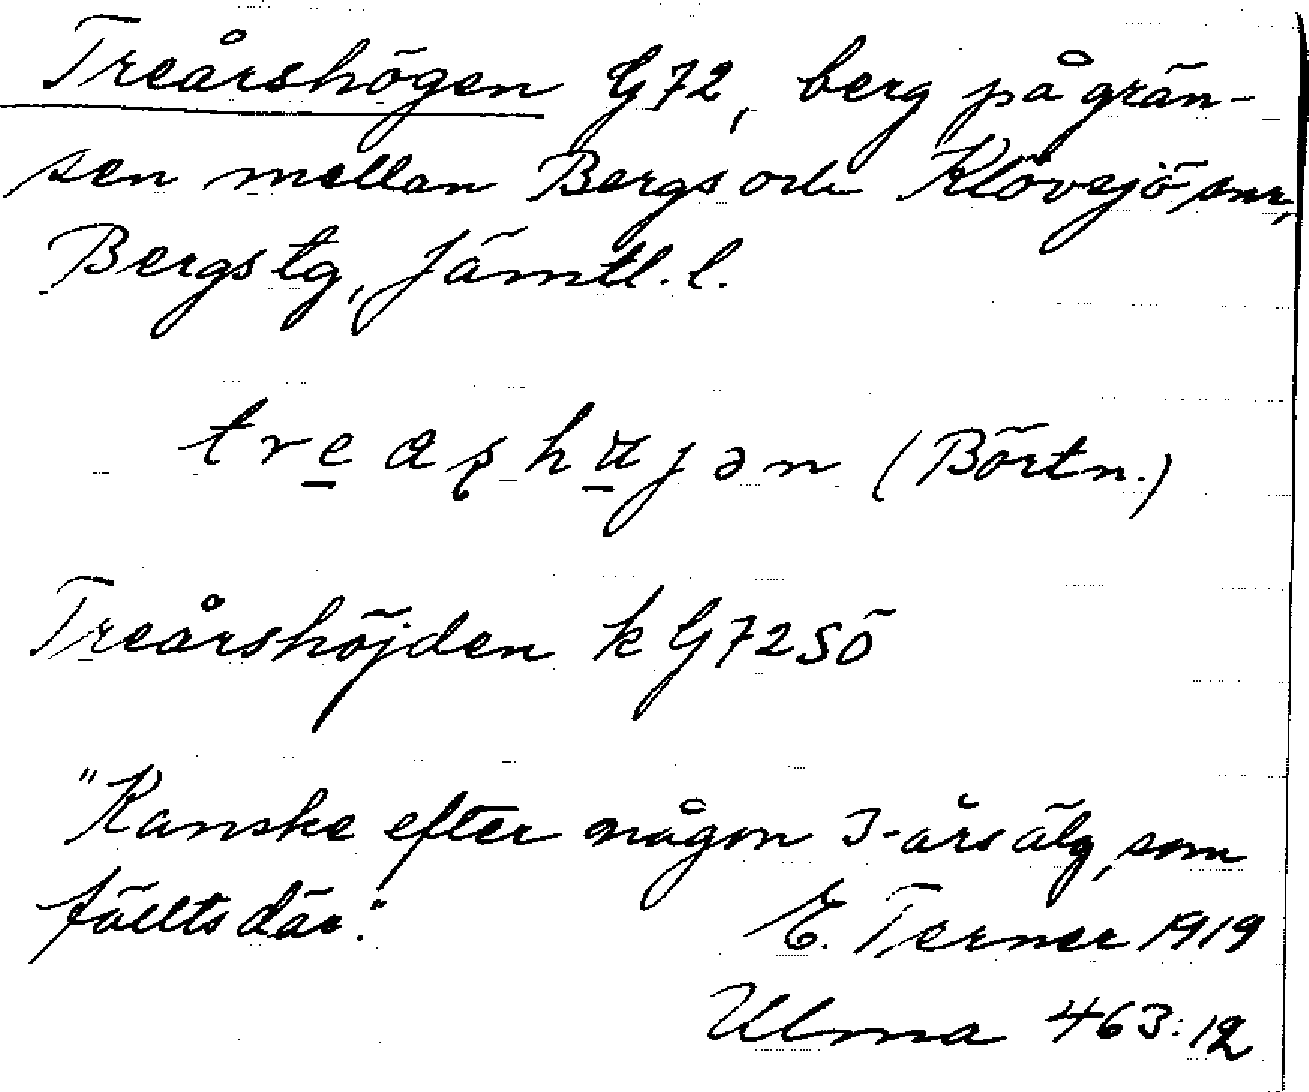 Treårshögen G72, berg på grän-
sen mellan Bergs och Klövsjö snr,
Bergs tg, Jämtl. l.
(Börtn.)
Treårshöjden k G72SÖ
"Kanske efter någon 3-års älg, som
fällts där."
E. Terner 1919
Ulma 463:12